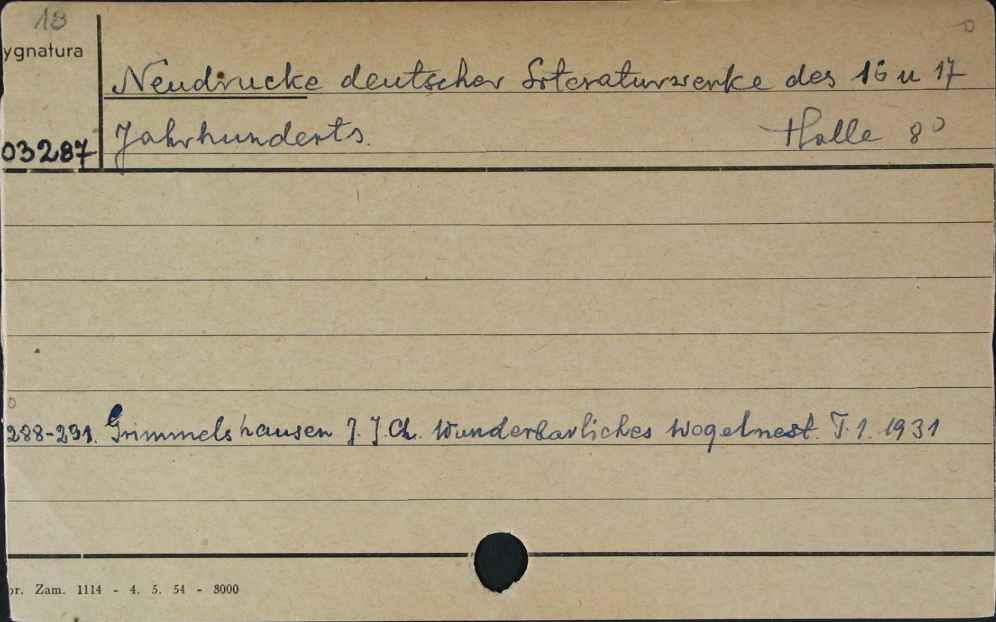 18
ygnatura
Neudrucke deutscher Literaturwerke des 16 u 17
03287 Jahrhunderts. Halle 8°
288-291. Grimmelshausen J. J. Ch. Wunderbarliches Wogelnest. T. 1. 1931
or. Zam. 1114 - 4. 5. 54 - 3000